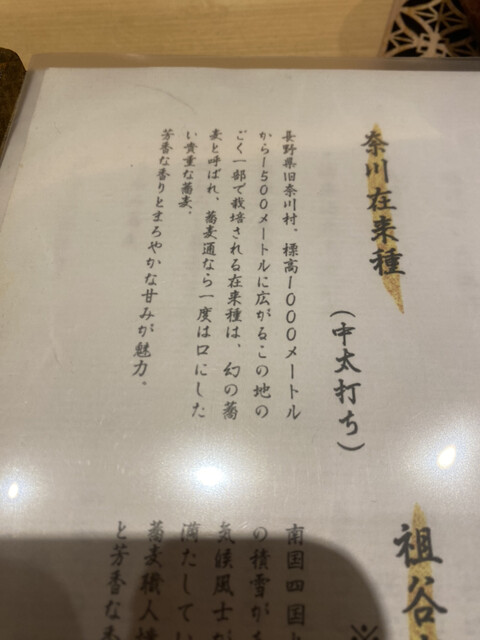 奈川在来種
(中太打ち)
長野県旧奈川村。標高1000メートル
から1500メートルに広がるこの地の
ごく一部で栽培される在来種は、幻の蕎
麦と呼ばれ、蕎麦通なら一度は口にした
い貴重な蕎麦。
芳香な香りとまろやかな甘みが魅力。
祖谷
※
南国四国
の積雪が
気候風土が
満たしてい
蕎麦職人
と芳香な